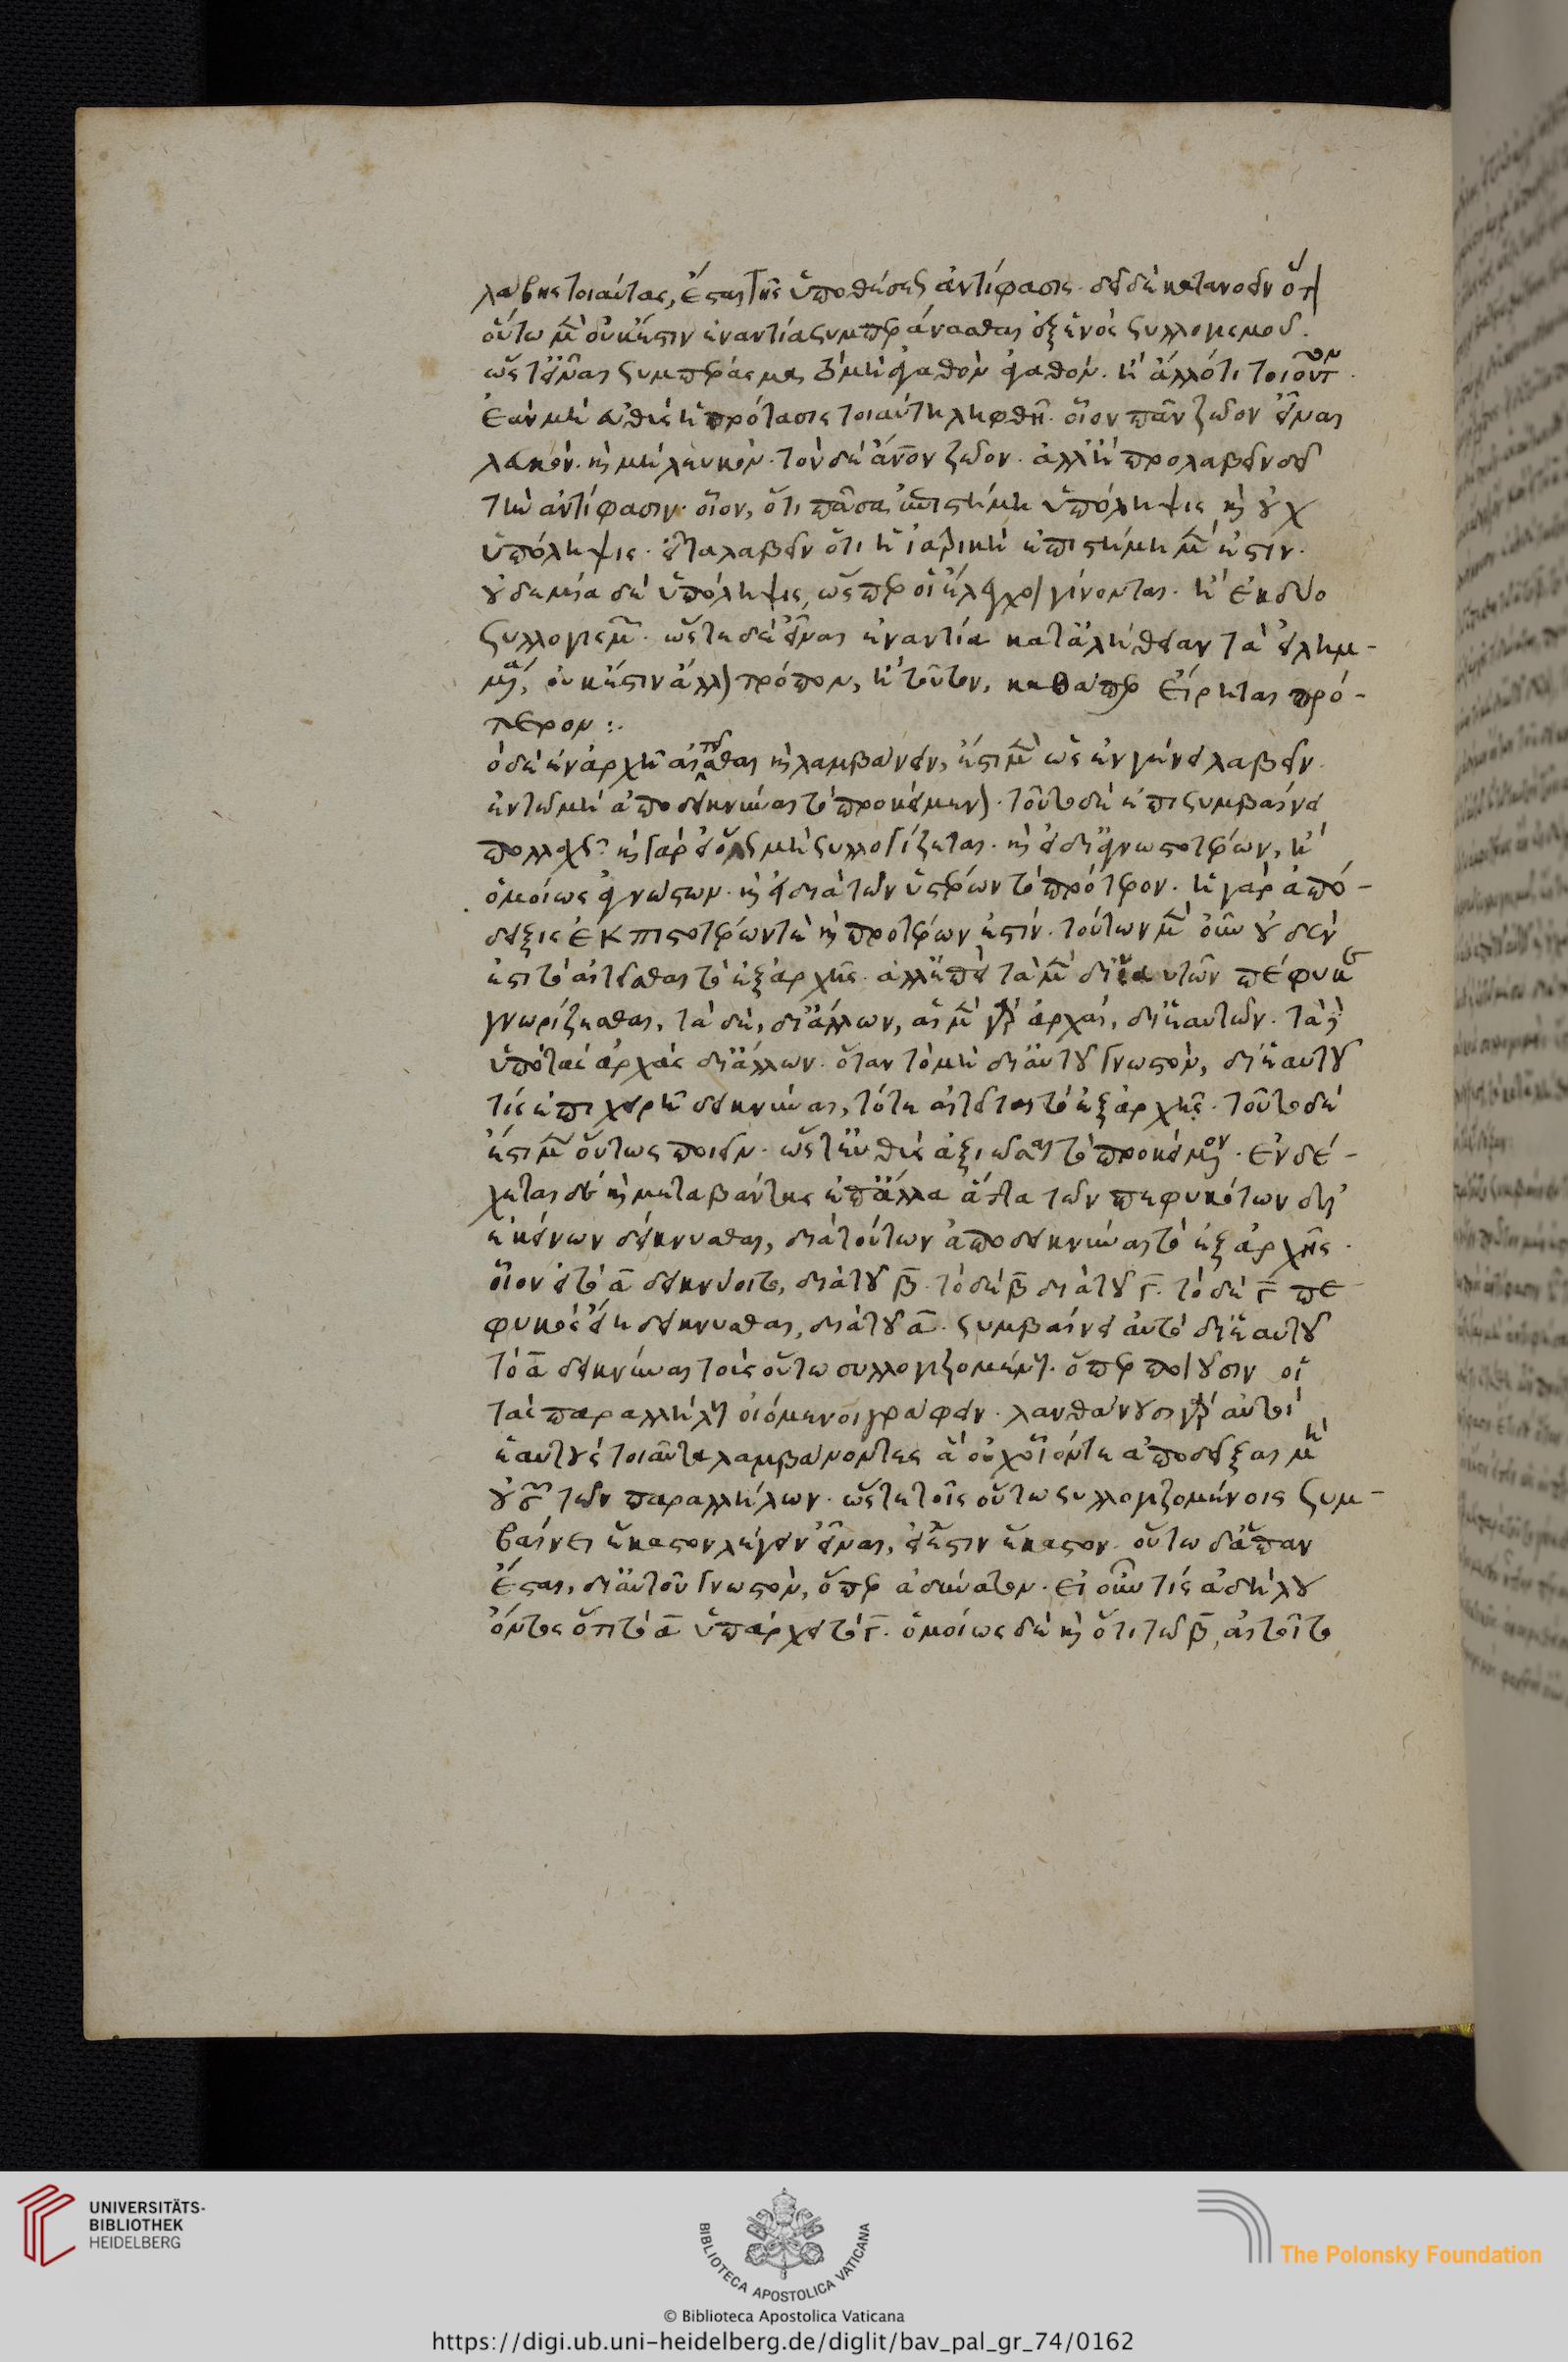 λάβης τοιαύτας, ἔσται τῆς ὑποθέσεως ἀντίφασις. δεῖ δὲ κατανοεῖν ὅτι
οὕτω μὲν οὐκ ἔστιν ἐναντία συμπεράνασθαι ἐξ ἑνὸς συλλογισμοῦ.
ὥστ' εἶναι συμπέρασμα τὸ μὴ ἀγαθὸν ἀγαθόν. ἢ ἄλλό τι τοιοῦτον.
ἐὰν μὴ εὐθὺς ἡ πρότασις τοιαύτη ληφθῆ. οἷον πᾶν ζῶον εἶναι
λευκόν. καὶ μὴ λευκόν. τὸν δὲ ἄνον ζῶον. ἀλλ' ἢ προλαβεῖν δεῖ
τὴν ἀντίφασιν. οἷον, ὅτι πᾶσα ἐπιστήμη ὑπόληψις καὶ οὐχ
ὑπόληψις. εἶτα λαβεῖν ὅτι ἡ ἰατρικὴ ἐπιστήμη μὲν ἐστίν.
οὐδεμία δὲ ὑπόληψις, ὥσπερ οἱ ἔλεγχοι γίνονται. ἢ ἐκ δύο
συλλογισμῶν. ὥστε δὲ εἶναι ἐναντία κατ' ἀλήθειαν τὰ εἰλημ-
μένα, οὐκ ἔστιν ἄλλον τρόπον, ἢ τοῦτον, καθάπερ εἴρηται πρό-
τερον:.
ὁ δὲ ἐν ἀρχῆ αἰτεῖσθαι καὶ λαμβάνειν, ἔστι μὲν ὡς ἐν γένει λαβεῖν.
ἐν τῶ μὴ ἀποδεικνύναι τὸ προκείμενον. τοῦτο δὲ ἐπισυμβαίνει
πολλαχῶς. καὶ γὰρ εἰ ὅλως μὴ συλλογίζεται. καὶ εἰ δι' ἀγνωστοτέρων, ἢ
ὁμοίως ἀγνώστων. καὶ εἰ διὰ τῶν ὑστέρων τὸ πρότερον. ἡ γὰρ ἀπό-
δειξις ἐκ πιστοτέρων τὲ καὶ προτέρων ἐστίν. τούτων μὲν οὖν οὐδέν
ἐστι τὸ αἰτεῖσθαι τὸ ἐξ ἀρχῆς. ἀλλ' ἐπεὶ τὰ μὲν δι' ἑαυτῶν πέφυκε
γνωρίζεσθαι, τὰ δὲ, δι' ἄλλων, αἱ μὲν γὰρ ἀρχαί, δι' ἑαυτῶν. τὰ δὲ
ὑπὸ τὰς ἀρχάς δι' ἄλλων. ὅταν τὸ μὴ δι' αὑτοῦ γνωστόν, δι' ἑαυτοῦ
τίς ἐπιχειρῆ δεικνύναι, τότε αἰτεῖται τὸ ἐξ ἀρχῆς. τοῦτο δὲ
ἔστι μὲν οὕτως ποιεῖν. ὥστ' εὐθὺς ἀξιῶσαι τὸ προκείμενον. ἐνδέ-
χεται δὲ καὶ μεταβάντες ἐπ' ἄλλα ἄττα τῶν πεφυκότων δι'
ἐκείνων δείκνυσθαι, διὰ τούτων ἀποδεικνύναι τὸ ἐξ ἀρχῆς.
οἷον εἰ τὸ α δεικνύοιτο, διὰ τοῦ β. τὸ δὲ β διὰ τοῦ γ. τὸ δὲ γ πε
φυκὸς εἴη δείκνυσθαι, διὰ τοῦ α. συμβαίνει αὐτὸ δι' ἑαυτοῦ
τὸ α δεικνύναι τοὺς οὕτω συλλογιζομένους. ὅπερ ποιοῦσιν οἱ
τὰς παραλλήλους οἰόμενοι γράφειν. λανθάνουσι γὰρ αὐτοὶ
ἑαυτοὺς τοιαῦτα λαμβάνοντες ἃ οὐχ οἷόν τε ἀποδεῖξαι μὴ
οὐσῶν τῶν παραλλήλων. ὥστε τοῖς οὕτω συλλογιζομένοις ξυμ-
βαίνει ἕκαστον λέγειν εἶναι, εἰ ἔστιν ἕκαστον. οὕτω δ' ἅπαν
ἔσται, δι' αὑτοῦ γνωστόν, ὅπερ ἀδύνατον. εἰ οὖν τίς ἀδήλου
ὄντος ὅτι τὸ α ὑπάρχει τῶ γ. ὁμοίως δὲ καὶ ὅτι τῶ β, αἰτοῖτο
UNIVERSITÄTS-
BIBLIOTHEK
HEIDELBERG
BIBLIOTECA APOSTOLICA VATICANA
The Polonsky Foundation
© Biblioteca Apostolica Vaticana
https://digi.ub.uni-heidelberg.de/diglit/bav_pal_gr_74/0162